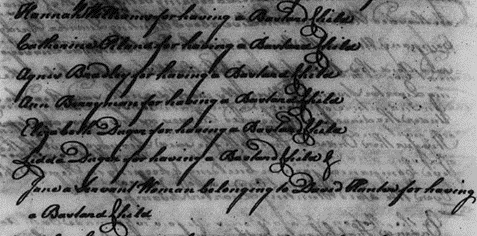 Hannah Williams for having a Barstard Child
Catherine for having a Bastard Child
Agnis Bradley for having a Bastard Child
Ann Berryman for having a Bastard Child
Elizabeth for having a Bastard Child
for having a Bastard Child &
Jane a Servant Woman belonging to David for having
a Bastard Child